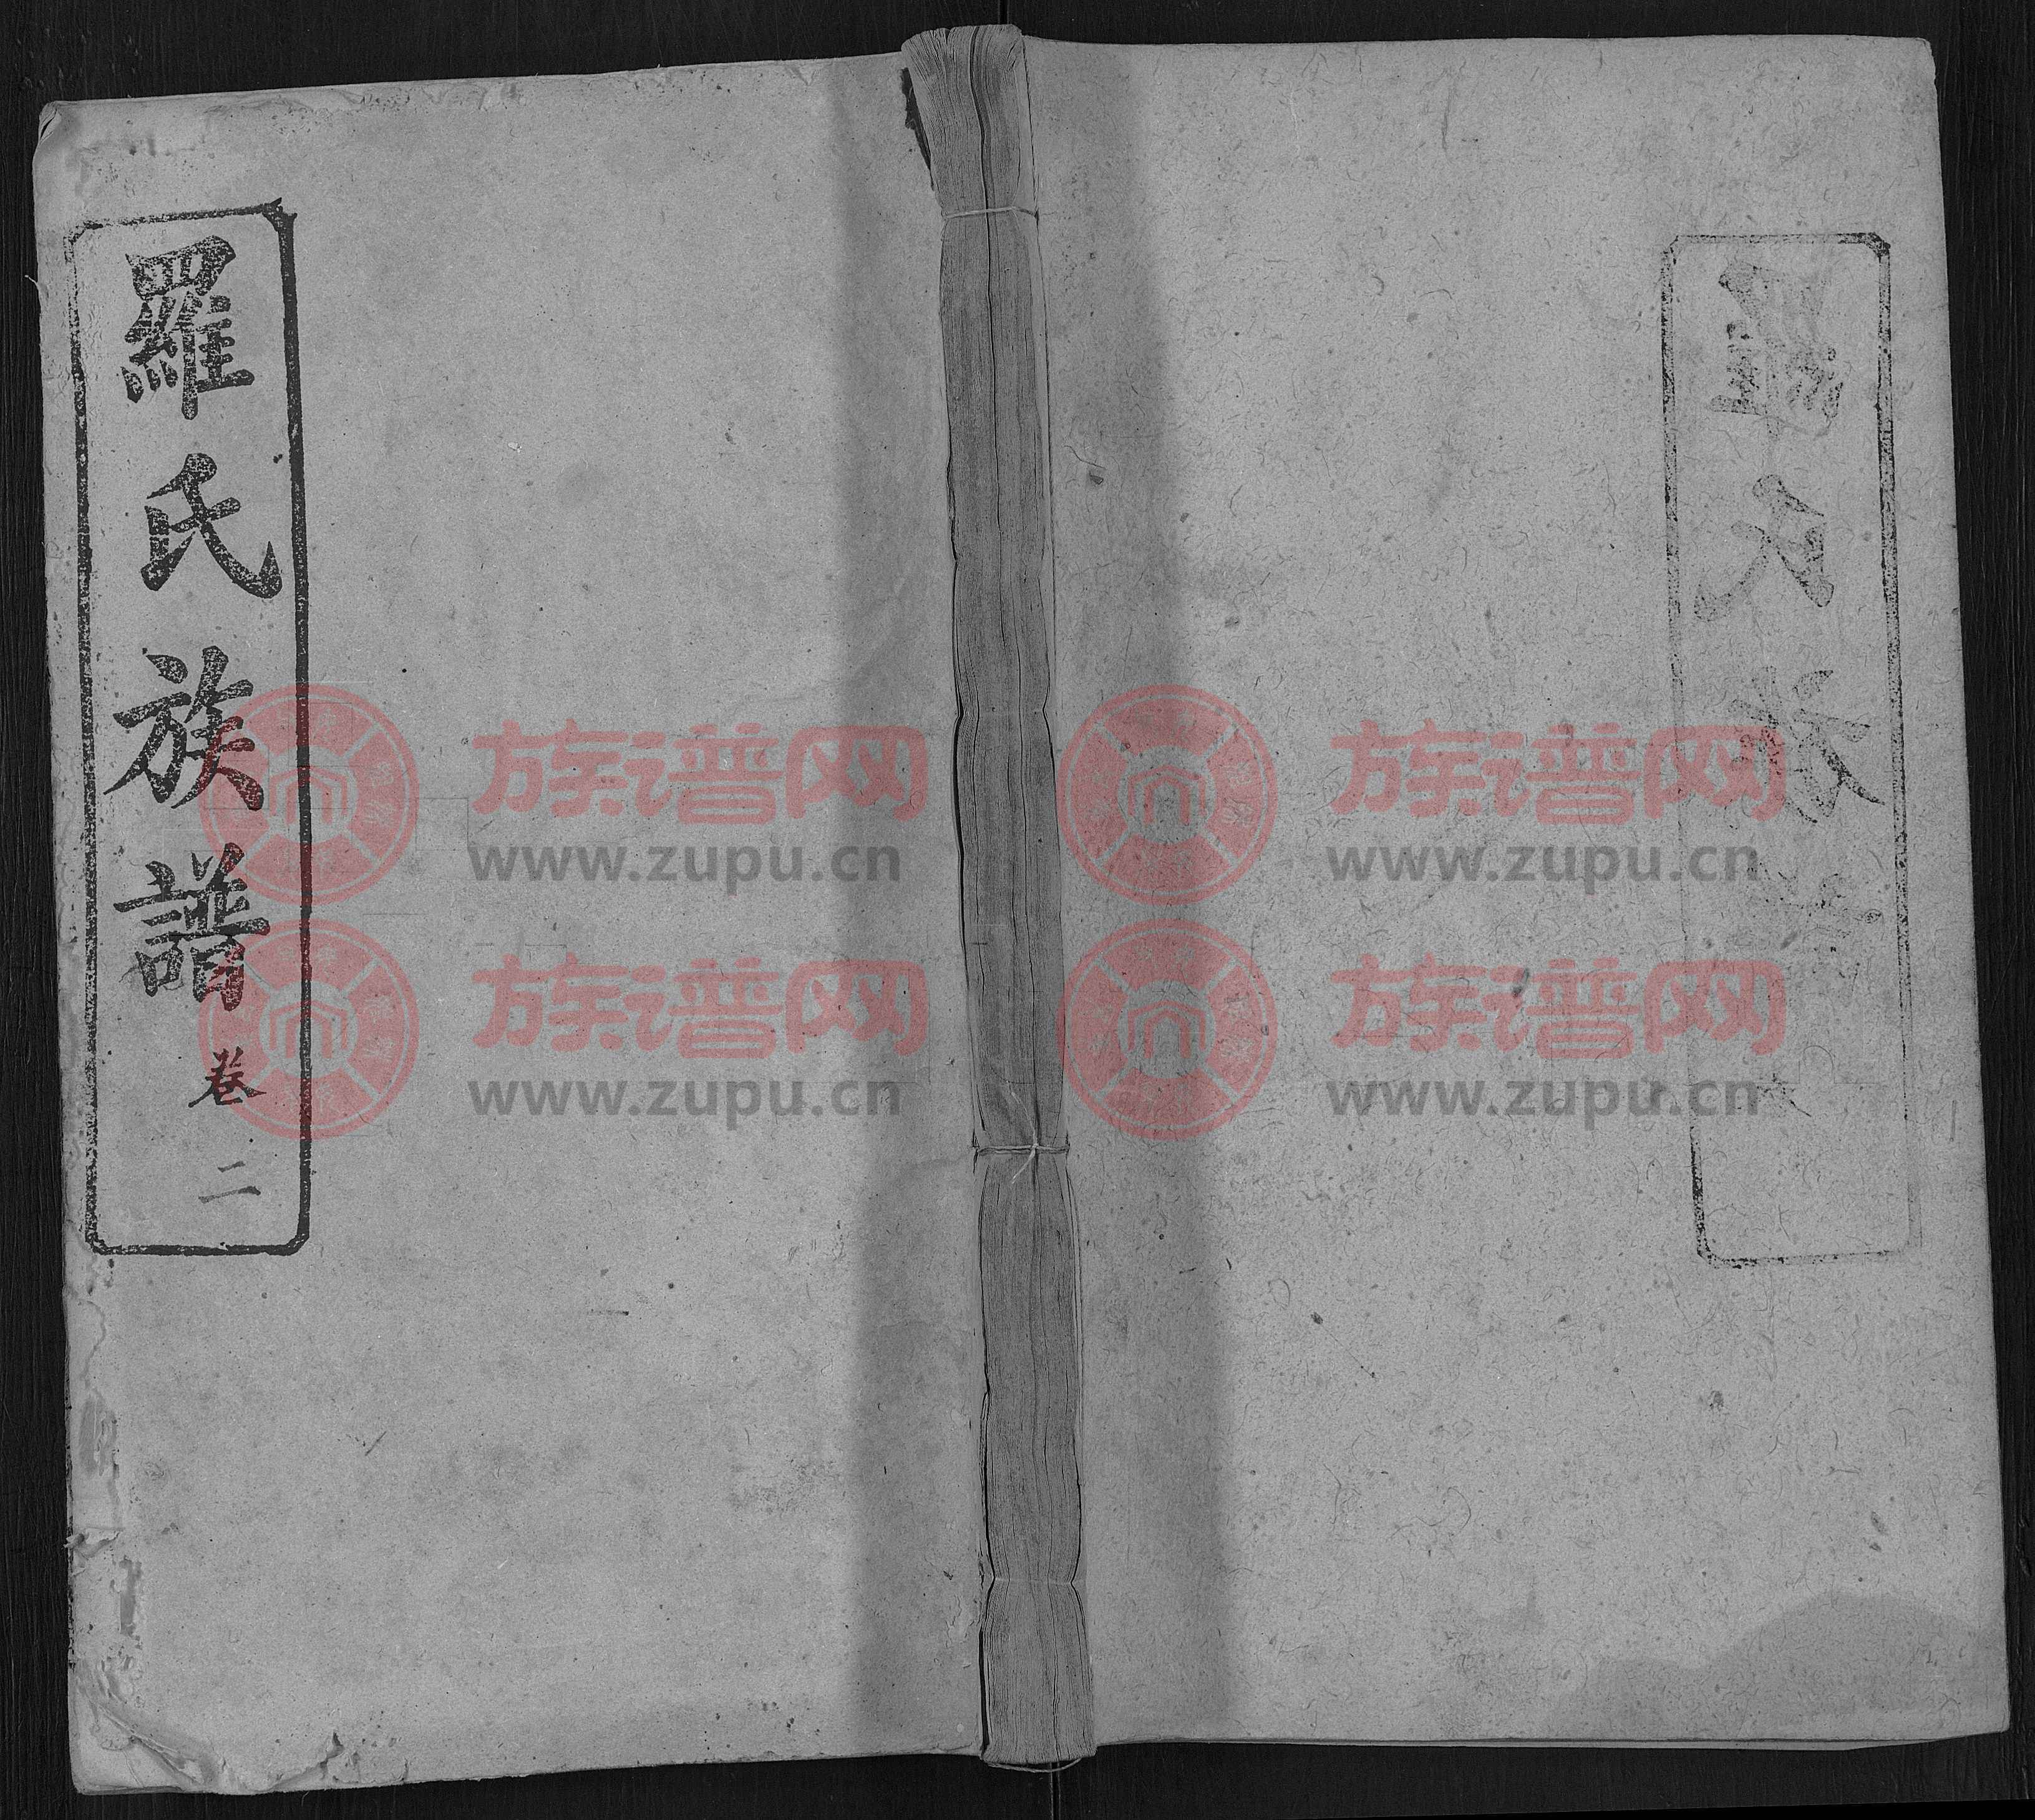 羅氏族譜 卷二
族谱网
www.zupu.cn
族谱网
www.zupu.cn
族谱网
www.zupu.cn
族谱网
www.zupu.cn